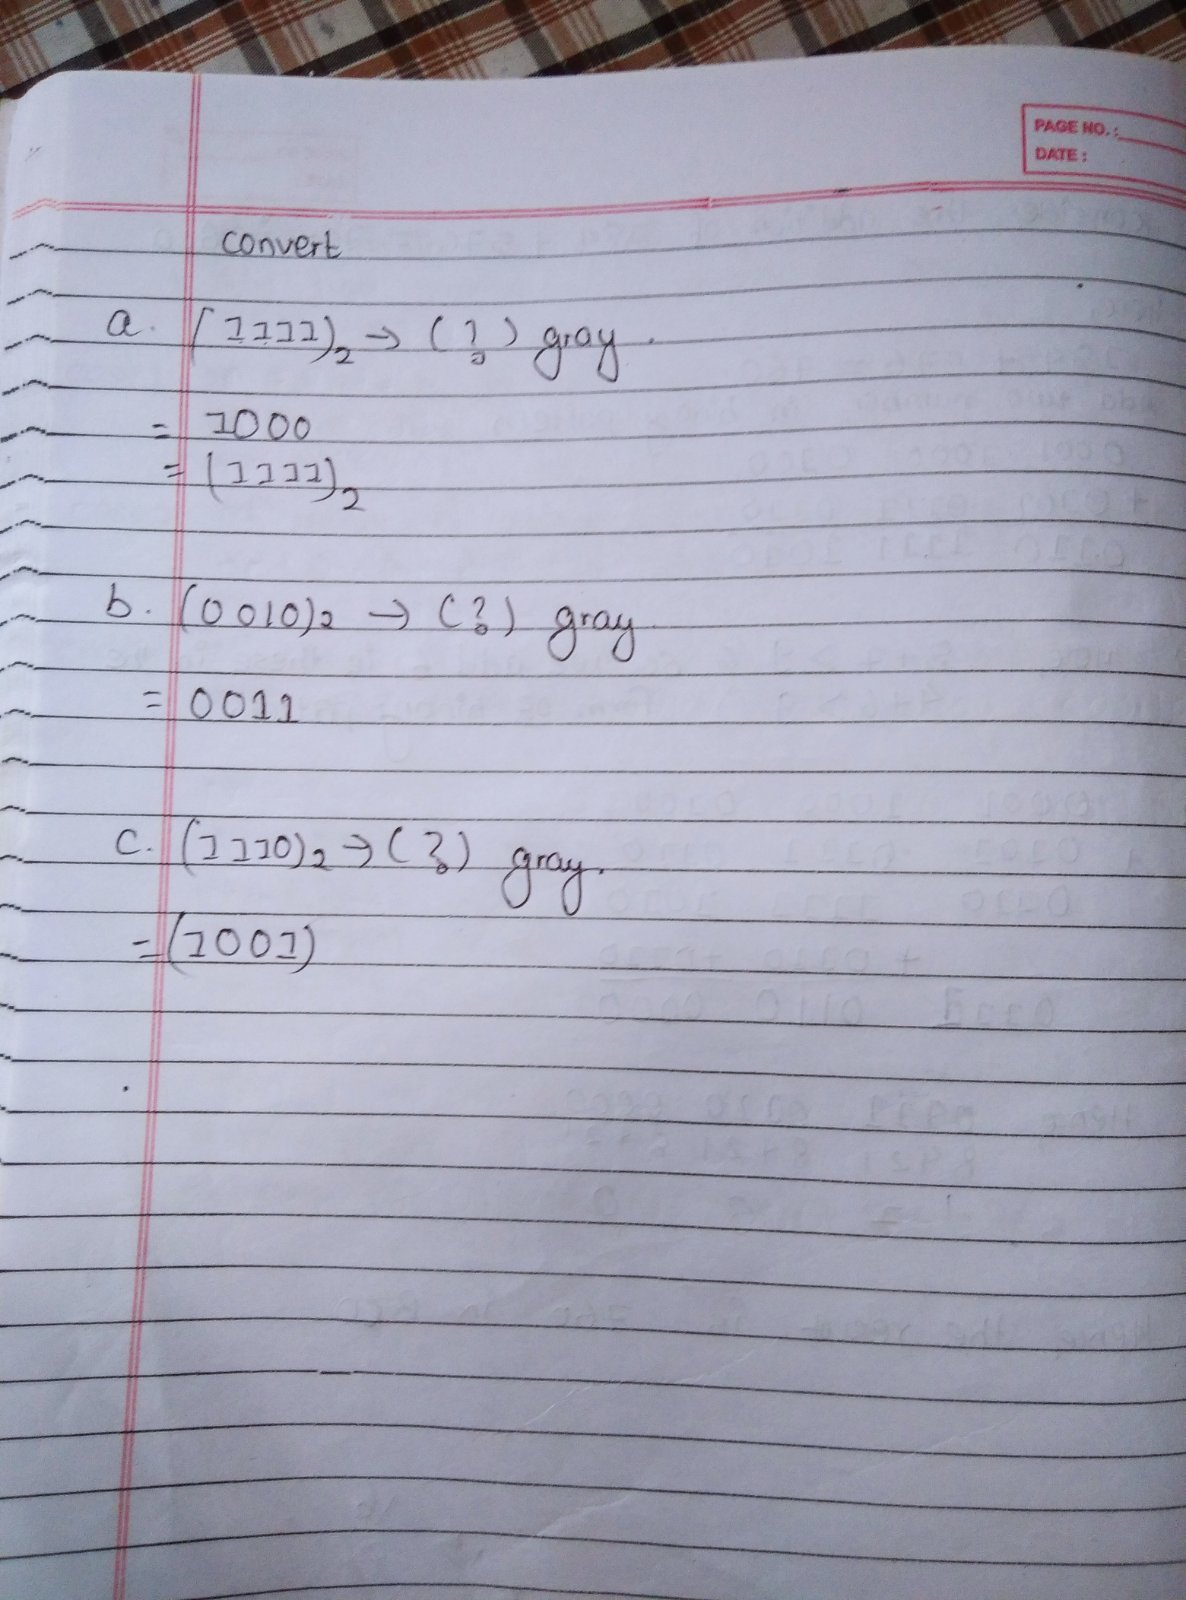 PAGE NO.:
DATE:
convert
a. (1111)₂ → (?) gray.
= 1000
= (1111)₂
b. (0010)₂ → (?) gray
= 0011
c. (1110)₂ → (?) gray.
= (1001)